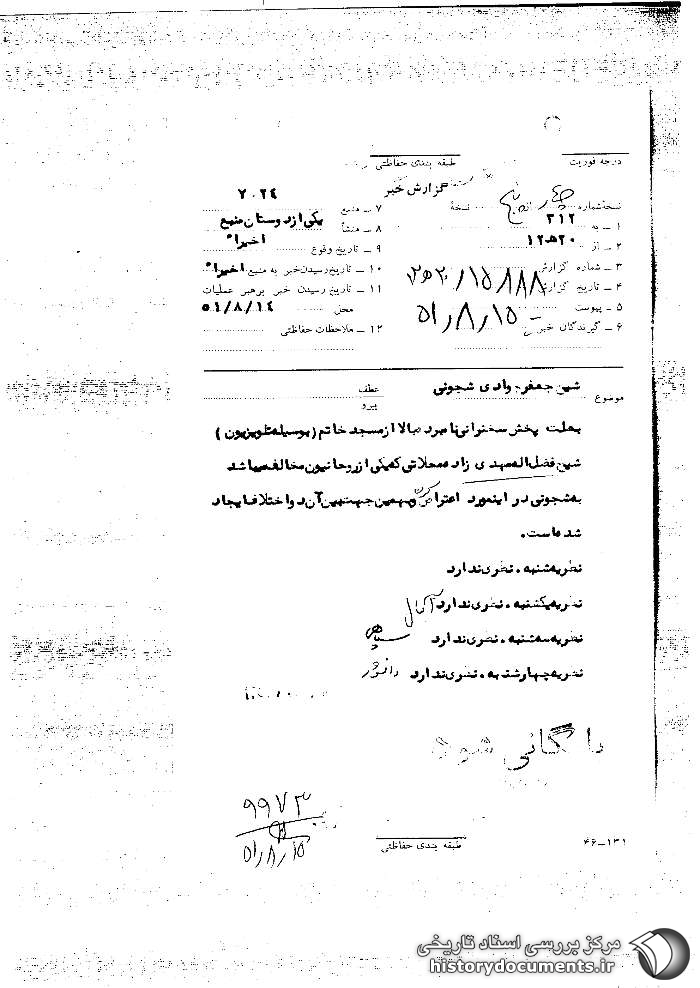 درجه فوریت
طبقه بندی حفاظتی
گزارش خبر
نسخه شماره نسخه
۱ ــ به ۳۱۲
۲ ــ از ۲۰ ه‍ ۱۲
۳ ــ شماره گزارش ۱۵۸۸۸ / ۲۰ ه‍ ۱۲
۴ ــ تاریخ گزارش ۵۱/۸/۱۵
۵ ــ پیوست
۶ ــ گیرندگان خبر
۷ ــ منبع ۷۰۲۴
۸ ــ منشأ یکی از دوستان منبع
۹ ــ تاریخ وقوع اخیراً
۱۰ ــ تاریخ رسیدن خبر به منبع اخیراً
۱۱ ــ تاریخ رسیدن خبر برهبر عملیات
محل ۵۱/۸/۱۴
۱۲ ــ ملاحظات حفاظتی
موضوع شیخ جعفر جوادی شجونی
عطف
پیرو
بعلت پخش سخنرانی نامبرده بالا از مسجد خاتم (بوسیله تلویزیون)
شیخ فضل اله مهدی زاده محلاتی که یکی از روحانیون مخالف میباشد
به شجونی در اینمورد اعتراض کرده و بهمین جهت بین آن دو اختلاف ایجاد
شده است.
نظریه شنبه. نظری ندارد
نظریه یکشنبه. نظری ندارد
نظریه سه شنبه. نظری ندارد سپاهی
نظریه چهارشنبه. نظری ندارد دانشور
بایگانی شود
۹۹۷۳
۵۱/۸/۱۵
طبقه بندی حفاظتی
۱۳۱ــ۴۶
مرکز بررسی اسناد تاریخی
historydocuments.ir